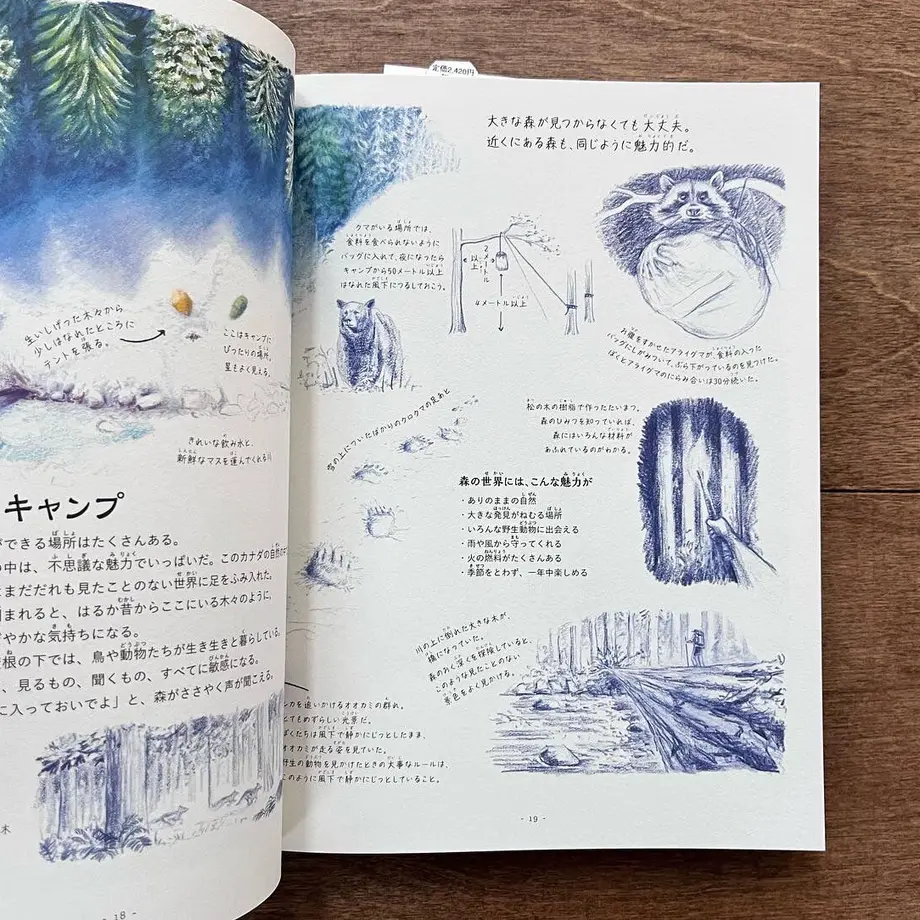 生いしげった木々から
少しはなれたところに
テントを張る。
ここはキャンプに
ぴったりの場所。
星もよく見える。
きれいな飲み水と、
新鮮なマスを運んでくれる川
キャンプ
ができる場所はたくさんある。
中は、不思議な魅力でいっぱいだ。このカナダの自然の中で
まだだれも見たことのない世界に足をふみ入れた。
まれると、はるか昔からここにいる木々のように、
やかな気持ちになる。
根の下では、鳥や動物たちが生き生きと暮らしている。
、見るもの、聞くもの、すべてに敏感になる。
に入っておいでよ」と、森がささやく声が聞こえる。
木
- 18 -
定価2,420円
大きな森が見つからなくても大丈夫。
近くにある森も、同じように魅力的だ。
クマがいる場所では、
食料を食べられないように
バッグに入れて、夜になったら
キャンプから50メートル以上
はなれた風下につるしておこう。
2メートル以上
4メートル以上
お腹をすかせたアライグマが、食料の入った
バッグにしがみついて、ぶら下がっているのを見つけた。
ぼくとアライグマのにらみ合いは30分続いた。
雪の上についたばかりのクロクマの足あと
松の木の樹脂で作ったたいまつ。
森のひみつを知っていれば、
森にはいろんな材料が
あふれているのがわかる。
森の世界には、こんな魅力が
・ありのままの自然
・大きな発見がねむる場所
・いろんな野生動物に出会える
・雨や風から守ってくれる
・火の燃料がたくさんある
・季節をとわず、一年中楽しめる
川の上に倒れた大きな木が、
橋になっていた。
森のおく深くを探検していると、
このような見たことのない
景色をよく見かける。
カを追いかけるオオカミの群れ。
とてもめずらしい光景だ。
ぼくたちは風下で静かにじっとしたまま、
オオカミが走る姿を見ていた。
野生の動物を見かけたときの大事なルールは、
このように風下で静かにじっとしていること。
- 19 -